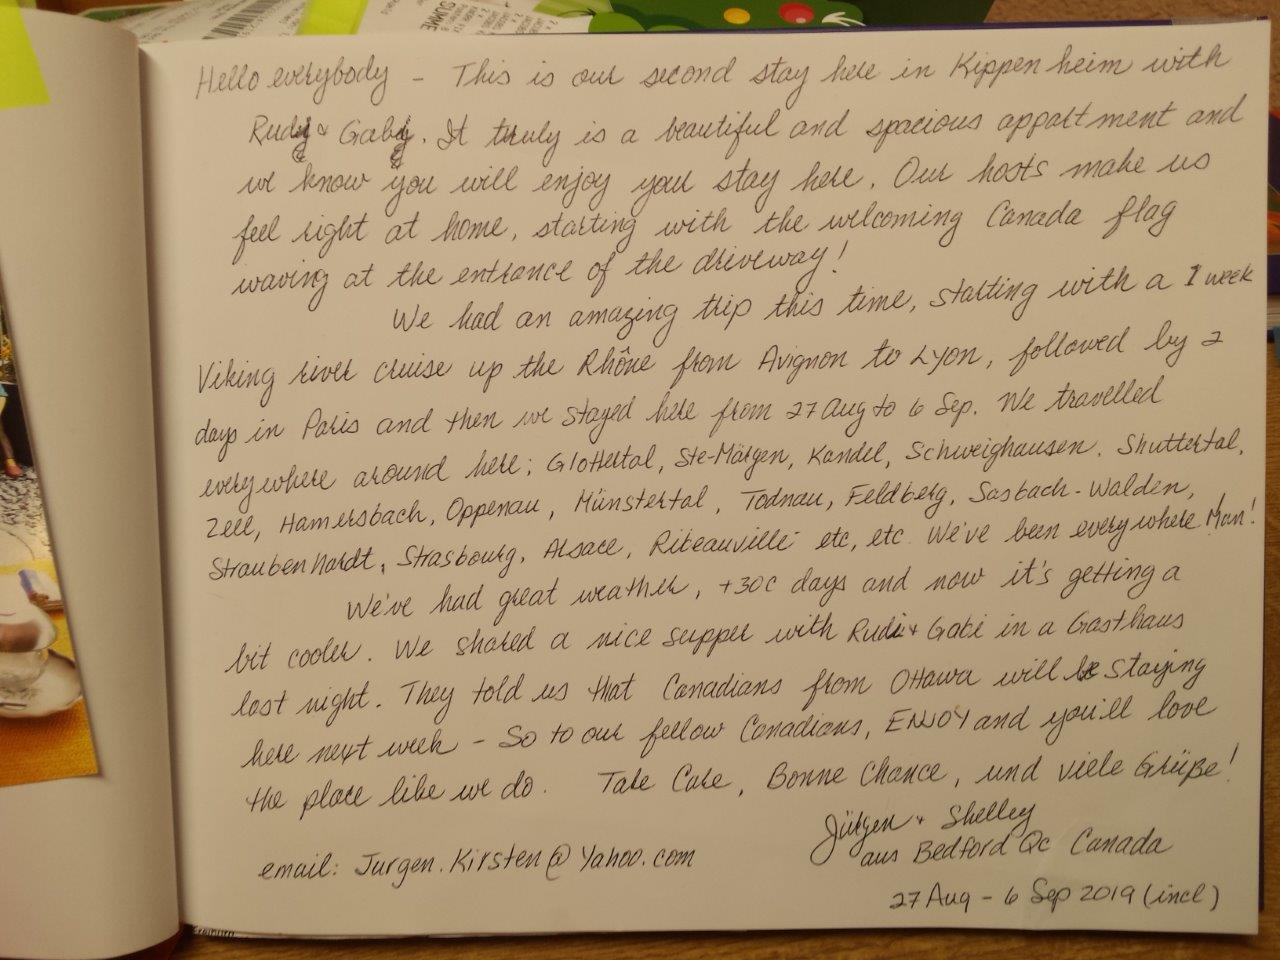 Hello everybody - This is our second stay here in Kippenheim with
Rudy & Gaby. It truly is a beautiful and spacious appartment and
we know you will enjoy your stay here. Our hosts make us
feel right at home, starting with the welcoming Canada flag
waving at the entrance of the driveway!
We had an amazing trip this time, starting with a 1 week
Viking river cruise up the Rhône from Avignon to Lyon, followed by 2
days in Paris and then we stayed here from 27 Aug to 6 Sep. We travelled
everywhere around here; Glottertal, Ste-Märgen, Kandel, Schweighausen, Shuttertal,
Zell, Hamersbach, Oppenau, Münstertal, Todnau, Feldberg, Sasbach-Walden,
Straubenhardt, Strasbourg, Alsace, Ribeauville etc, etc. We've been everywhere Man!
We've had great weather, +30C days and now it's getting a
bit cooler. We shared a nice supper with Rudi & Gabi in a Gasthaus
last night. They told us that Canadians from Ottawa will be staying
here next week - So to our fellow Canadians, ENJOY and you'll love
the place like we do. Take Care, Bonne Chance, und viele Grüße!
Jürgen & Shelley
aus Bedford Qc Canada
email: Jurgen.Kirsten@Yahoo.com
27 Aug - 6 Sep 2019 (incl)